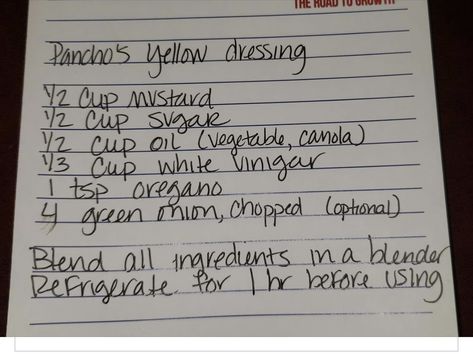 THE ROAD TO GROWTH
Pancho's yellow dressing
1/2 cup mustard
1/2 cup sugar
1/2 cup oil (vegetable, canola)
1/3 cup white vinigar
1 tsp oregano
4 green onion, chopped (optional)
Blend all ingredients in a blender
Refrigerate for 1 hr before using